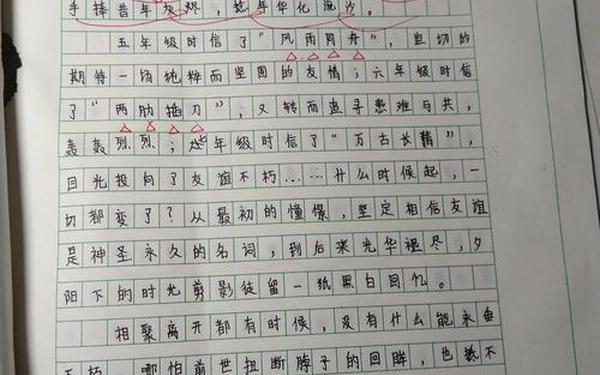 手捧昔年残烬,悲年华化流沙。
五年级时信了“风雨同舟”,迫切的
期待一场纯粹而坚固的友情;六年级时信
了“两肋插刀”,又转而追寻患难与共,
轰轰烈烈;七年级时信了“万古长青”,
目光投向了友谊不朽……什么时候起,一
切都变了?从最初的憧憬,坚定相信友谊
是神圣永久的名词,到后来光华褪尽,夕
阳下的时光剪影徒留一纸黑白回忆。
相聚离开都有时候,没有什么能永垂
不朽。哪怕前世扭断脖子的回眸,也抵不